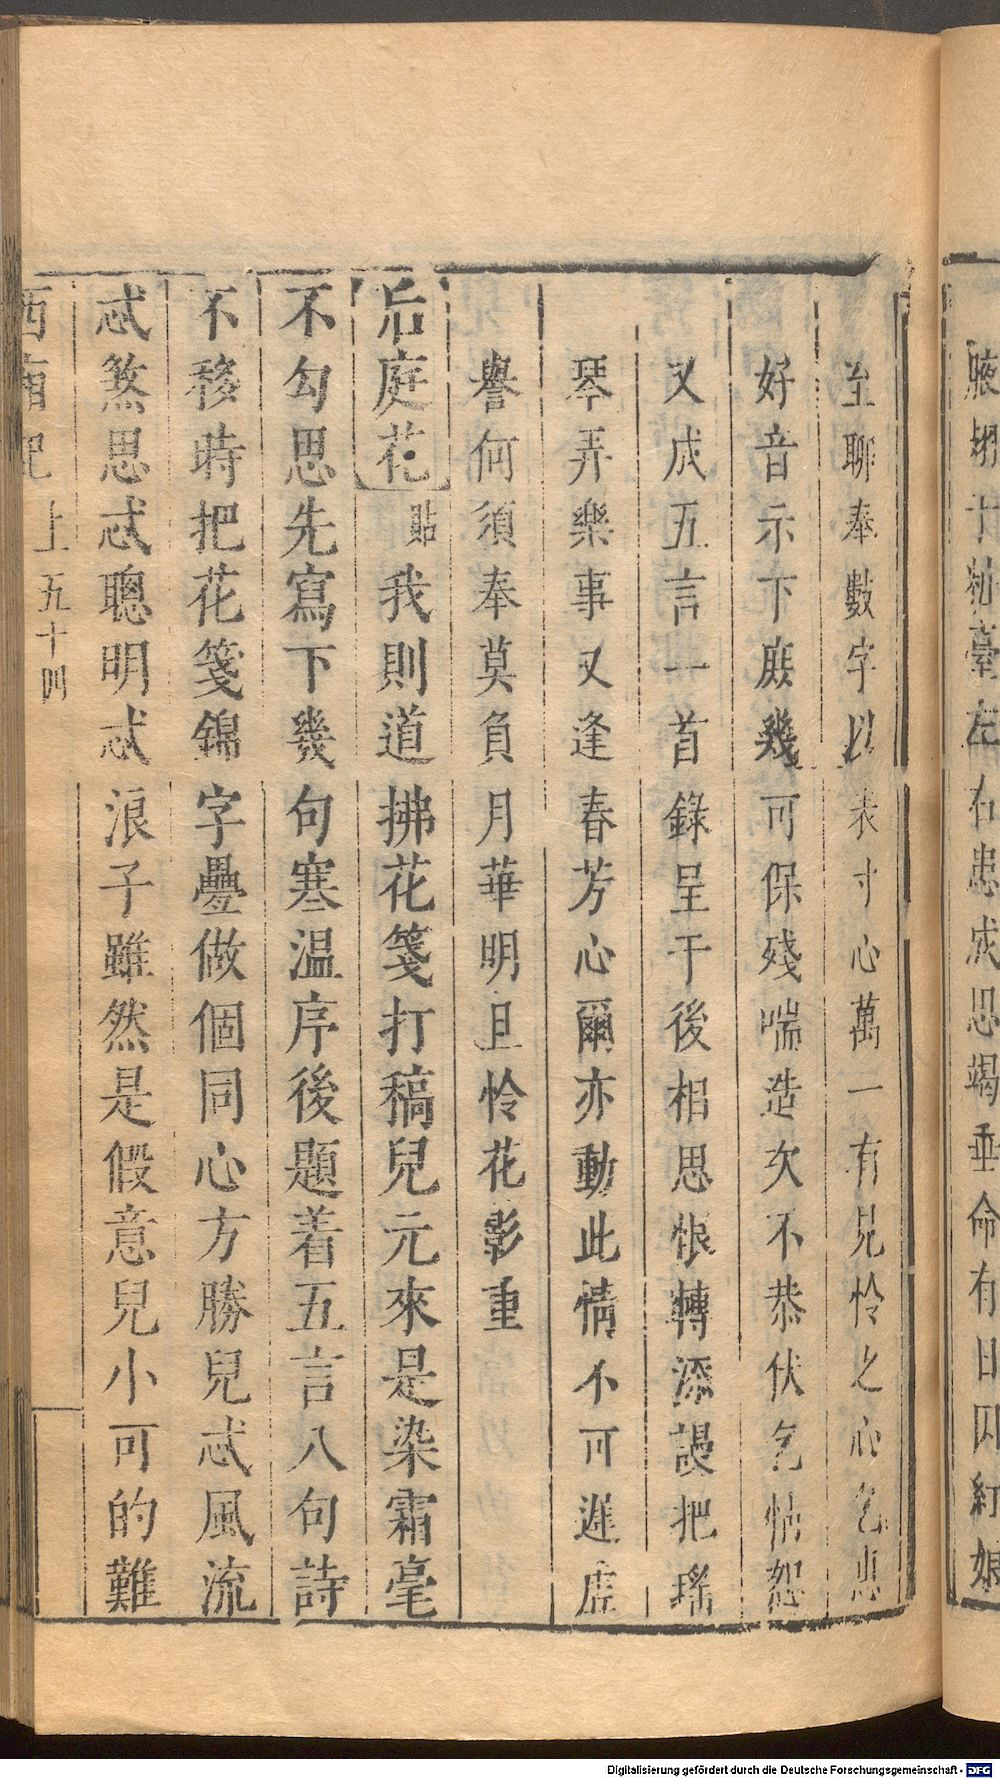 腋 于粧臺左右患成思竭垂命有日因紅娘
至聊奉數字以表寸心萬一有見憐之心乞惠
好音示下庶幾可保殘喘造次不恭伏乞怙恕
又成五言一首錄呈于後相思恨轉添謾把瑤
琴弄樂事又逢春芳心爾亦動此情不可違虛
譽何須奉莫負月華明且怜花影重
后庭花 貼 我則道拂花箋打稿兒元來是染霜毫
不勾思先寫下幾句寒温序後題着五言八句詩
不移時把花箋錦字疊做個同心方勝兒忒風流
忒煞思忒聰明忒浪子雖然是假意兒小可的難
西廂記 上 五十四
Digitalisierung gefördert durch die Deutsche Forschungsgemeinschaft - DFG